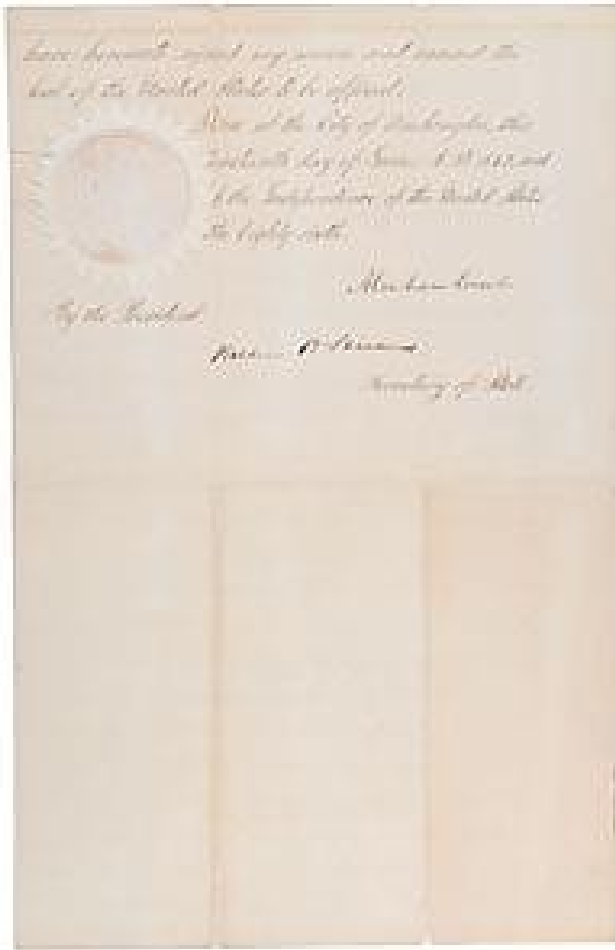 have hereunto signed my name and caused the
Seal of the United States to be affixed.
Done at the City of Washington, this
day of June A.D. and
of the Independence of the United States
the Eighty sixth.
Abraham Lincoln
By the President
William H Seward
Secretary of State